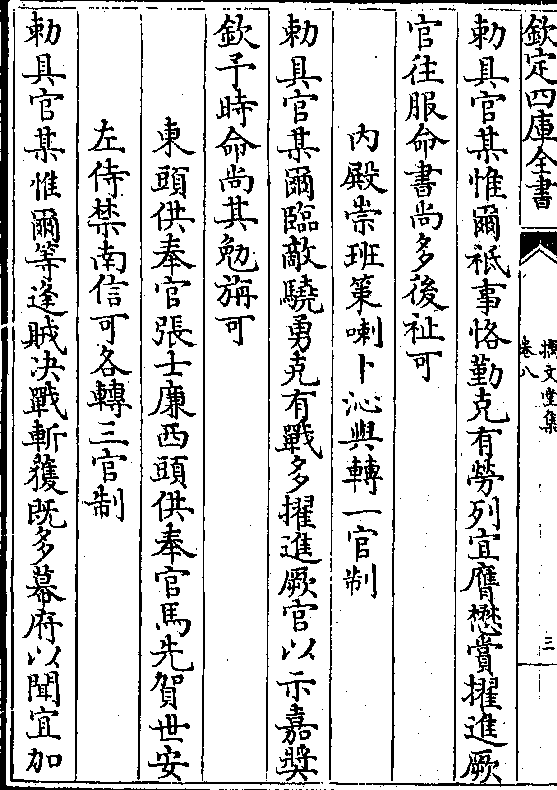 欽定四庫全書
摛文堂集
卷八
三
勅具官某惟爾祇事恪勤克有勞列宜膺懋賞擢進厥
官往服命書尚多後祉可
内殿崇班策喇卜沁與轉一官制
勅具官某爾臨敵驍勇克有戰多擢進厥官以示嘉奬
欽予時命尚其勉旃可
東頭供奉官張士亷西頭供奉官馬先賀世安
左侍禁南信可各轉三官制
勅具官某惟爾等逢賊决戰斬獲既多幕府以聞宜加